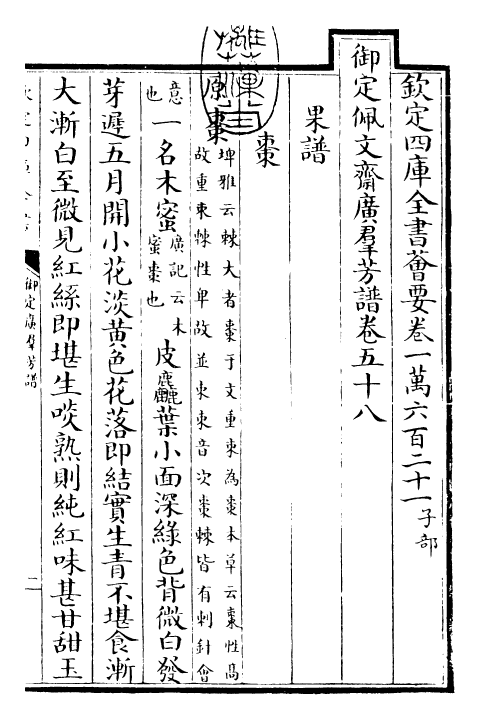 欽定四庫全書薈要卷一萬六百二十一子部
御定佩文齋廣羣芳譜卷五十八
果譜
棗
原棗埤雅云棘大者棗于文重朿為棗本草云棗性高
故重朿棘性卑故並朿朿音次棗棘皆有刺針會
意也一名木蜜廣記云木蜜棗也皮麤葉小面深綠色背微白發
芽遲五月開小花淡黄色花落即結實生青不堪食漸
大漸白至微見紅絲即堪生啖熟則純紅味甚甘甜玉
御定廣羣芳譜
一